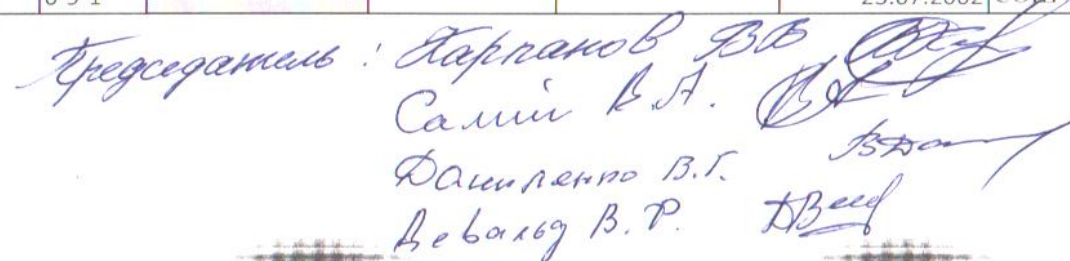 23.07.2002
Председатель: Карпанов ВВ
Самий В.А.
Даниленко В.Г.
Девальд В.Р.